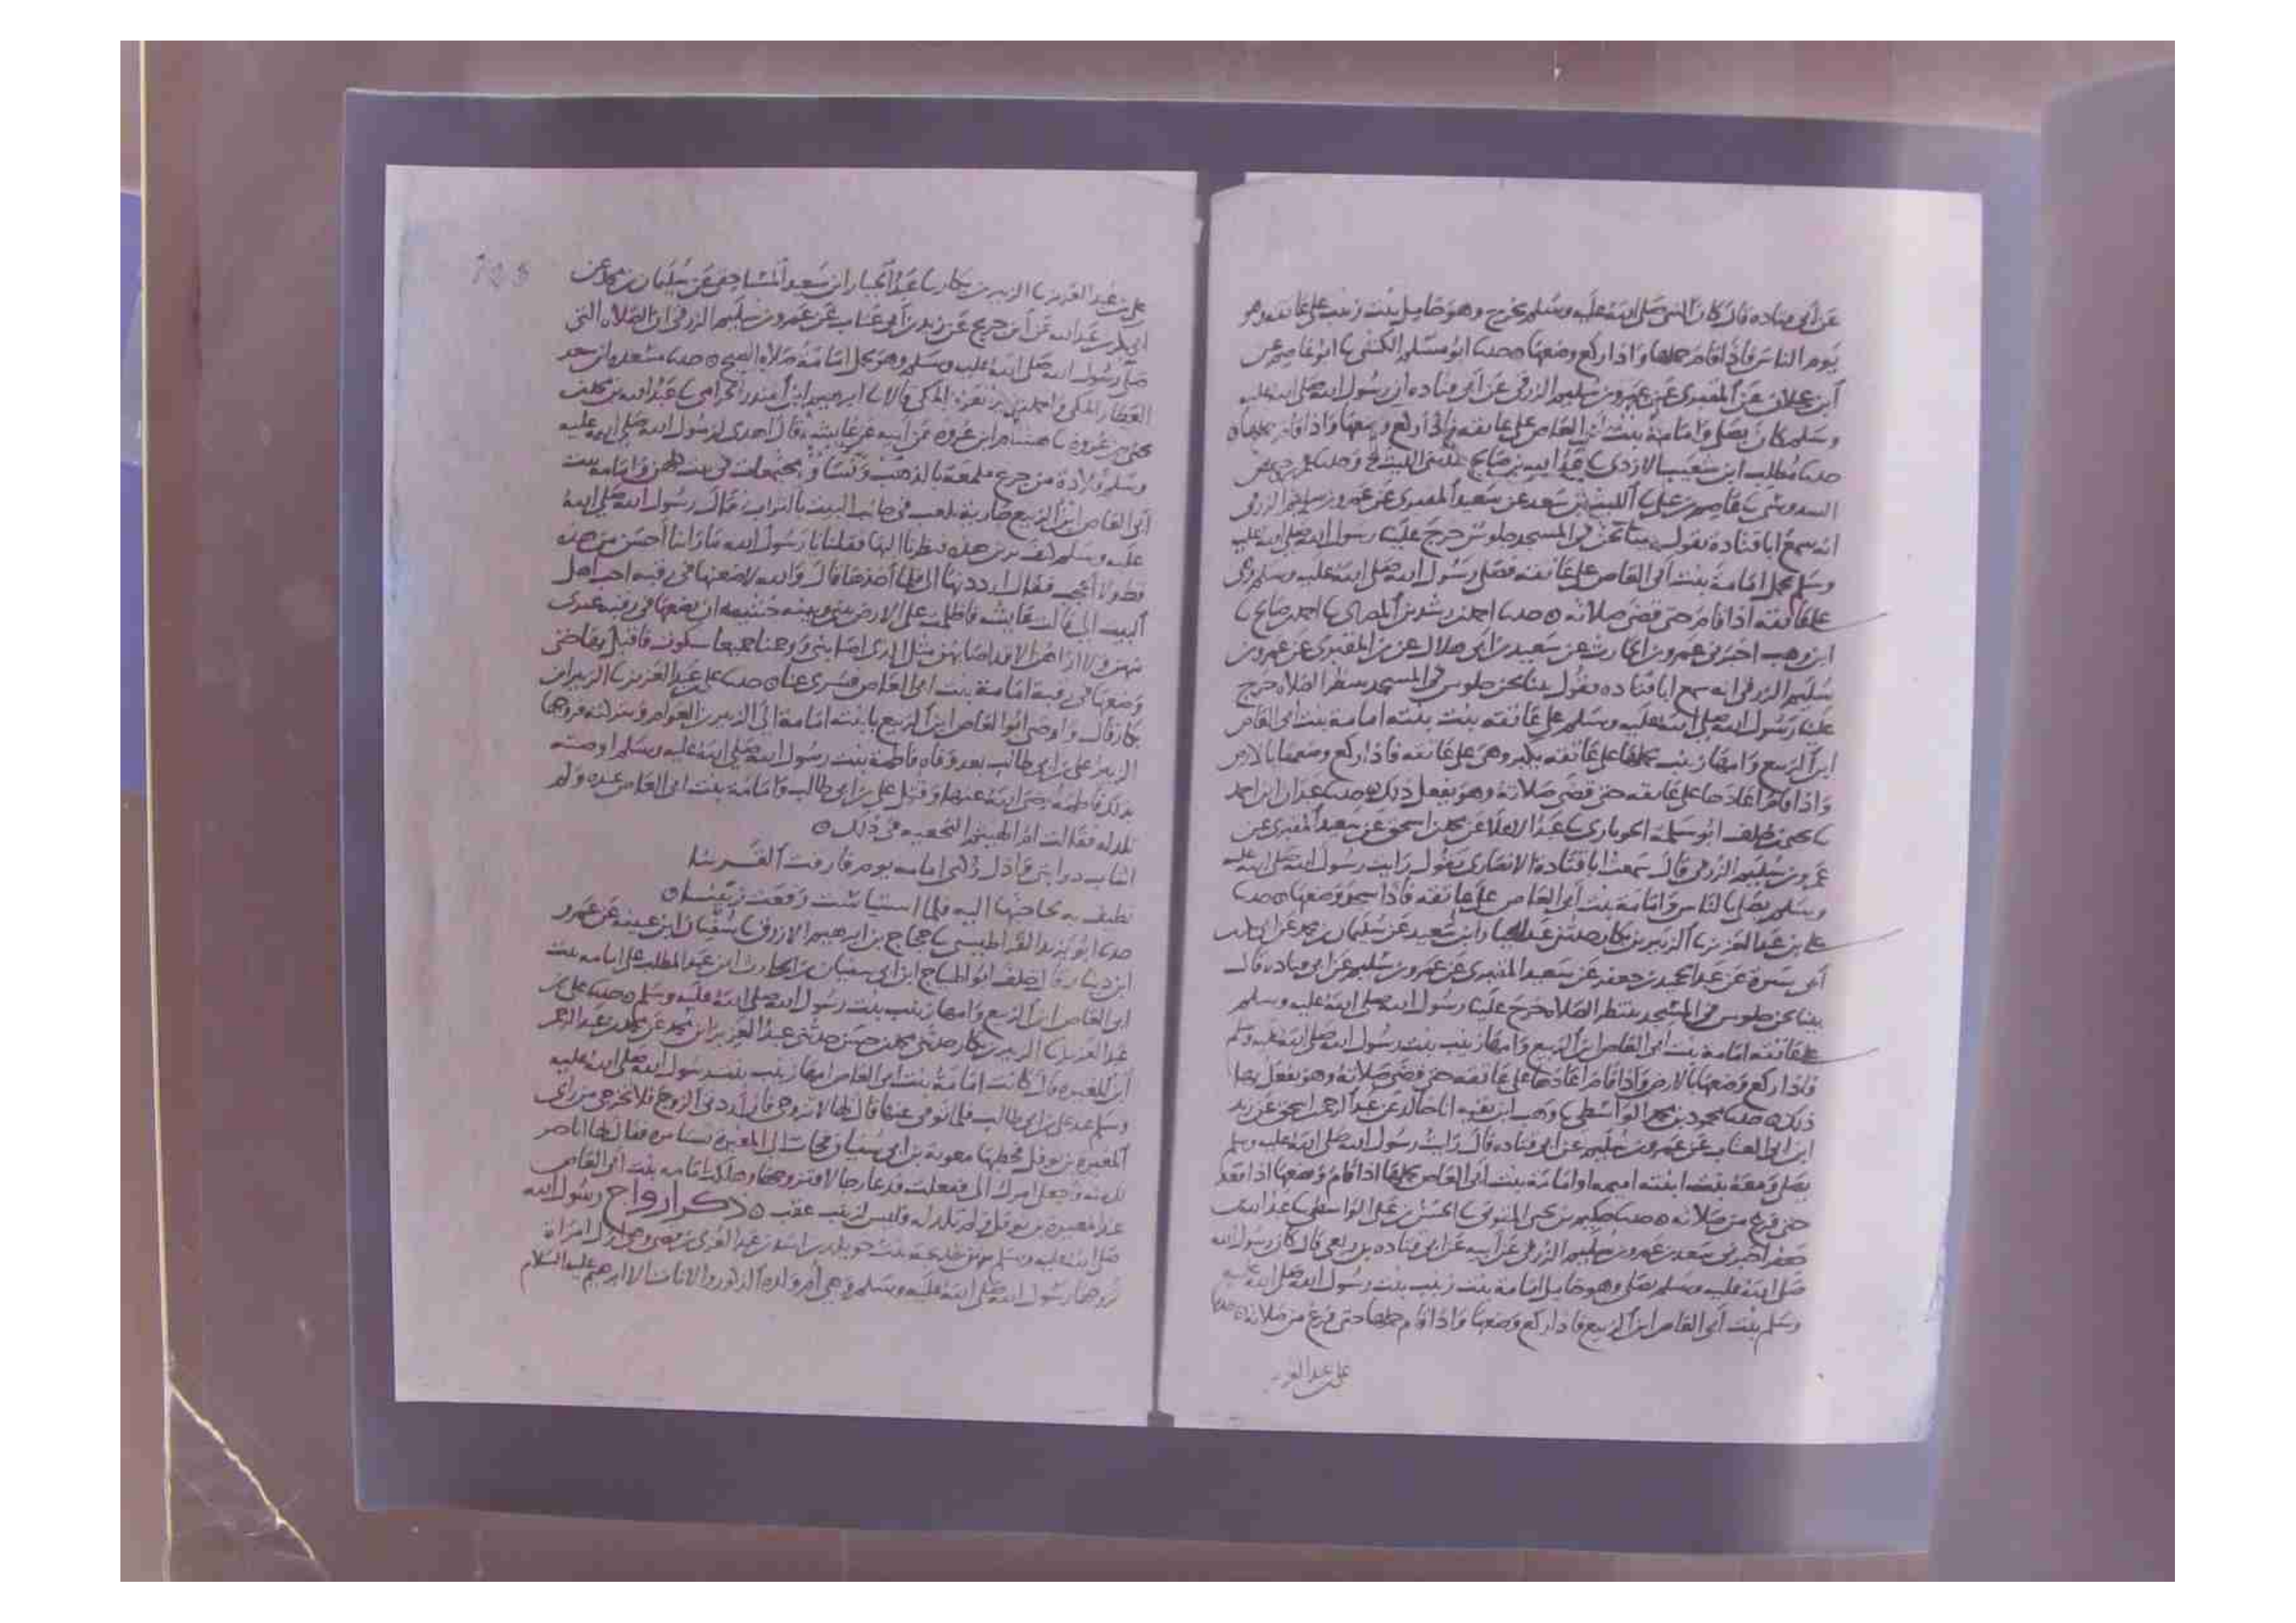 عن أبي قتاده قال كان النبي صلى الله عليه وسلم يخرج وهو حامل بنت زينب على عاتقه وهو
يوم الناس فاذا قام حملها واذا ركع وضعها ه حدثنا ابو مسلم الكشي ثنا ابو عاصم عن
ابن عجلان عن المقبري عن عمرو بن سليم الزرقي عن أبي قتاده ان رسول الله صلى الله عليه
وسلم كان يصلي وامامة بنت أبي العاص على عاتقه فاذا ركع وضعها واذا قام حملها ه
حدثنا مطلب ابن شعيب الازدي ثنا عبد الله بن صالح حدثني الليث ح وحدثنا عمر بن حفص
السدوسي ثنا عاصم بن علي ثنا الليث بن سعد عن سعيد المقبري عن عمرو بن سليم الزرقي
انه سمع ابا قتادة يقول بينا نحن في المسجد جلوس خرج علينا رسول الله صلى الله عليه
وسلم يحمل امامة بنت أبي العاص على عاتقه فصلى رسول الله صلى الله عليه وسلم وهي
على عاتقه اذا قام حتى قضى صلاته ه حدثنا احمد بن رشدين المصري ثنا احمد بن صالح ثنا
ابن وهب اخبرني عمرو بن الحارث عن سعيد بن ابي هلال عن المقبري عن عمرو بن
سليم الزرقي انه سمع ابا قتاده يقول بينا نحن جلوس في المسجد ننتظر الصلاه خرج
علينا رسول الله صلى الله عليه وسلم على عاتقه بنت بنته امامة بنت أبي العاص
ابن الربيع وامها زينب يحملها على عاتقه يكبر وهي على عاتقه فاذا ركع وضعها بالارض
واذا قام اعادها على عاتقه حتى قضى صلاته وهو يفعل ذلك ه حدثنا عبدان ابن احمد
ثنا يحيى بن خلف ابو سلمة الجوباري ثنا عبد الاعلا عن محمد بن اسحق عن سعيد المقبري عن
عمرو بن سليم الزرقي قال سمعت ابا قتادة الانصاري يقول رايت رسول الله صلى الله عليه
وسلم يصلي بالناس وامامة بنت أبي العاص على عاتقه فاذا سجد وضعها ه حدثنا
علي بن عبد العزيز ثنا الزبير بن بكار حدثني عبد الجبار ابن سعيد عن سليمان بن محمد عن
أبي سبرة عن عبد الحميد بن جعفر عن سعيد المقبري عن عمرو بن سليم عن ابي قتاده قال
بينا نحن جلوس في المسجد ننتظر الصلاة خرج علينا رسول الله صلى الله عليه وسلم
على عاتقه امامة بنت أبي العاص ابن الربيع وامها زينب بنت رسول الله صلى الله عليه وسلم
فاذا ركع وضعها بالارض واذا قام اعادها على عاتقه حتى قضى صلاته وهو يفعل بها
ذلك ه حدثنا محمود بن محمد الواسطي ثنا وهب ابن بقيه انا خالد عن عبد الرحمن بن اسحق عن زيد
ابن ابي العتاب عن عمرو بن سليم عن ابي قتاده قال رايت رسول الله صلى الله عليه وسلم
يصلي ومعه بنت ابنته اميمه او امامة بنت أبي العاص يحملها اذا قام ووضعها اذا قعد
حتى فرغ من صلاته ه حدثنا حكيم بن يحيى المتوثي ثنا الحسن بن علي الواسطي ثنا
جعفر اخبرني سعد بن عمرو بن سليم الزرقي عن أبيه عن ابي قتاده بن ربعي قال كان رسول الله
صلى الله عليه وسلم يصلي وهو حامل امامة بنت زينب بنت رسول الله صلى الله عليه
وسلم بنت أبي العاص ابن الربيع فاذا ركع وضعها واذا قام حملها حتى فرغ من صلاته ه حدثنا
علي بن عبد العزيز
علي بن عبد العزيز ثنا الزبير بن بكار ثنا عبد الجبار ابن سعيد المساحقي عن سليمان بن محمد عن
عبد الله عن ابن جريج عن زيد بن أبي عتاب عن عمرو بن سليم الزرقي ان الصلاه التي
صلى رسول الله صلى الله عليه وسلم وهو يحمل امامة صلاة الصبح ه حدثنا مسعدة ابن سعد
العطار المكي قالا ثنا ابرهيم ابن المنذر الحزامي ثنا عبد الله بن محمد بن
يحيى بن عروة ثنا هشام ابن عروه عن ابيه عن عايشه قال اهدى لرسول الله صلى الله عليه
وسلم قلادة من جزع ملمعة بالذهب ونساؤه مجتمعات في بيت كلهن وامامة بنت
أبي العاص ابن الربيع جارية تلعب في جانب البيت بالتراب فقال رسول الله صلى الله
عليه وسلم كيف ترين هذه فنظرنا اليها فقلنا يا رسول الله ما راينا أحسن من هذه
قط ولا أعجب فقال ارددنها الي فلما أخذها قال والله لاضعنها في رقبه احب اهل
البيت الي قالت عايشه فاظلمت علي الارض بيني وبينه خشيه ان يضعها في رقبه غيري
منهن ولا اراهن الا قد اصابهن مثل الذي اصابني ووجمنا جميعا سكون فاقبل بها حتى
وضعها في رقبة امامة بنت ابي العاص فسري عنا ه حدثنا علي بن عبد العزيز ثنا الزبير ابن
بكار قال واوصى أبو العاص ابن الربيع بابنته امامة الى الزبير بن العوام فزوجها
الزبير علي بن ابي طالب بعد وفاه فاطمة بنت رسول الله صلى الله عليه وسلم اوصته
بذلك فاطمة رضي الله عنها وقتل علي بن ابي طالب وامامة بنت ابي العاص عنده ولم
تلد له فقالت ام الهيثم النخعيه في ذلك ه
اشاب ذوابتي واذل ركني امامه يوم فارقت القرينا
تطيف به لحاجتها اليه فلما استياست رفعت رنينا ه
حدثنا ابو يزيد القراطيسي ثنا حجاج بن ابرهيم الازرق ثنا سفيان ابن عيينه عن عمرو
ابن دينار قال خلف ابن ابي سفيان بن الحارث ابن عبد المطلب على امامه بنت
ابي العاص ابن الربيع وامها زينب بنت رسول الله صلى الله عليه وسلم ه حدثنا علي بن
عبد العزيز ثنا الزبير بن بكار حدثني محمد بن حسن حدثني عبد العزيز ابن محمد عن محمد بن عبد الرحمن
ابن المغيره قال كانت امامة بنت ابي العاص امها زينب بنت رسول الله صلى الله عليه
وسلم عند علي بن ابي طالب فلما توفي عنها قال لها لا تزوجي فان أردتي الزوج فلا تخرجي من راي
المغيره بن نوفل فخطبها معوية بن ابي سفيان فجات الى المغيرة تستامره فقال لها انا خير
لك منه فاجعلي امرك الي ففعلت فدعا رجالا فتزوجها وهلكت امامه بنت ابي العاص
عند المغيرة بن نوفل ولم تلد له فليس لزينب عقب ه ذكر ازواج رسول الله
صلى الله عليه وسلم منهن خديجه بنت خويلد بن اسد بن عبد العزى بن قصي وهي اول امراة
تزوجها رسول الله صلى الله عليه وسلم وهي أم ولده الذكور والاناث الا ابرهيم عليه السلام